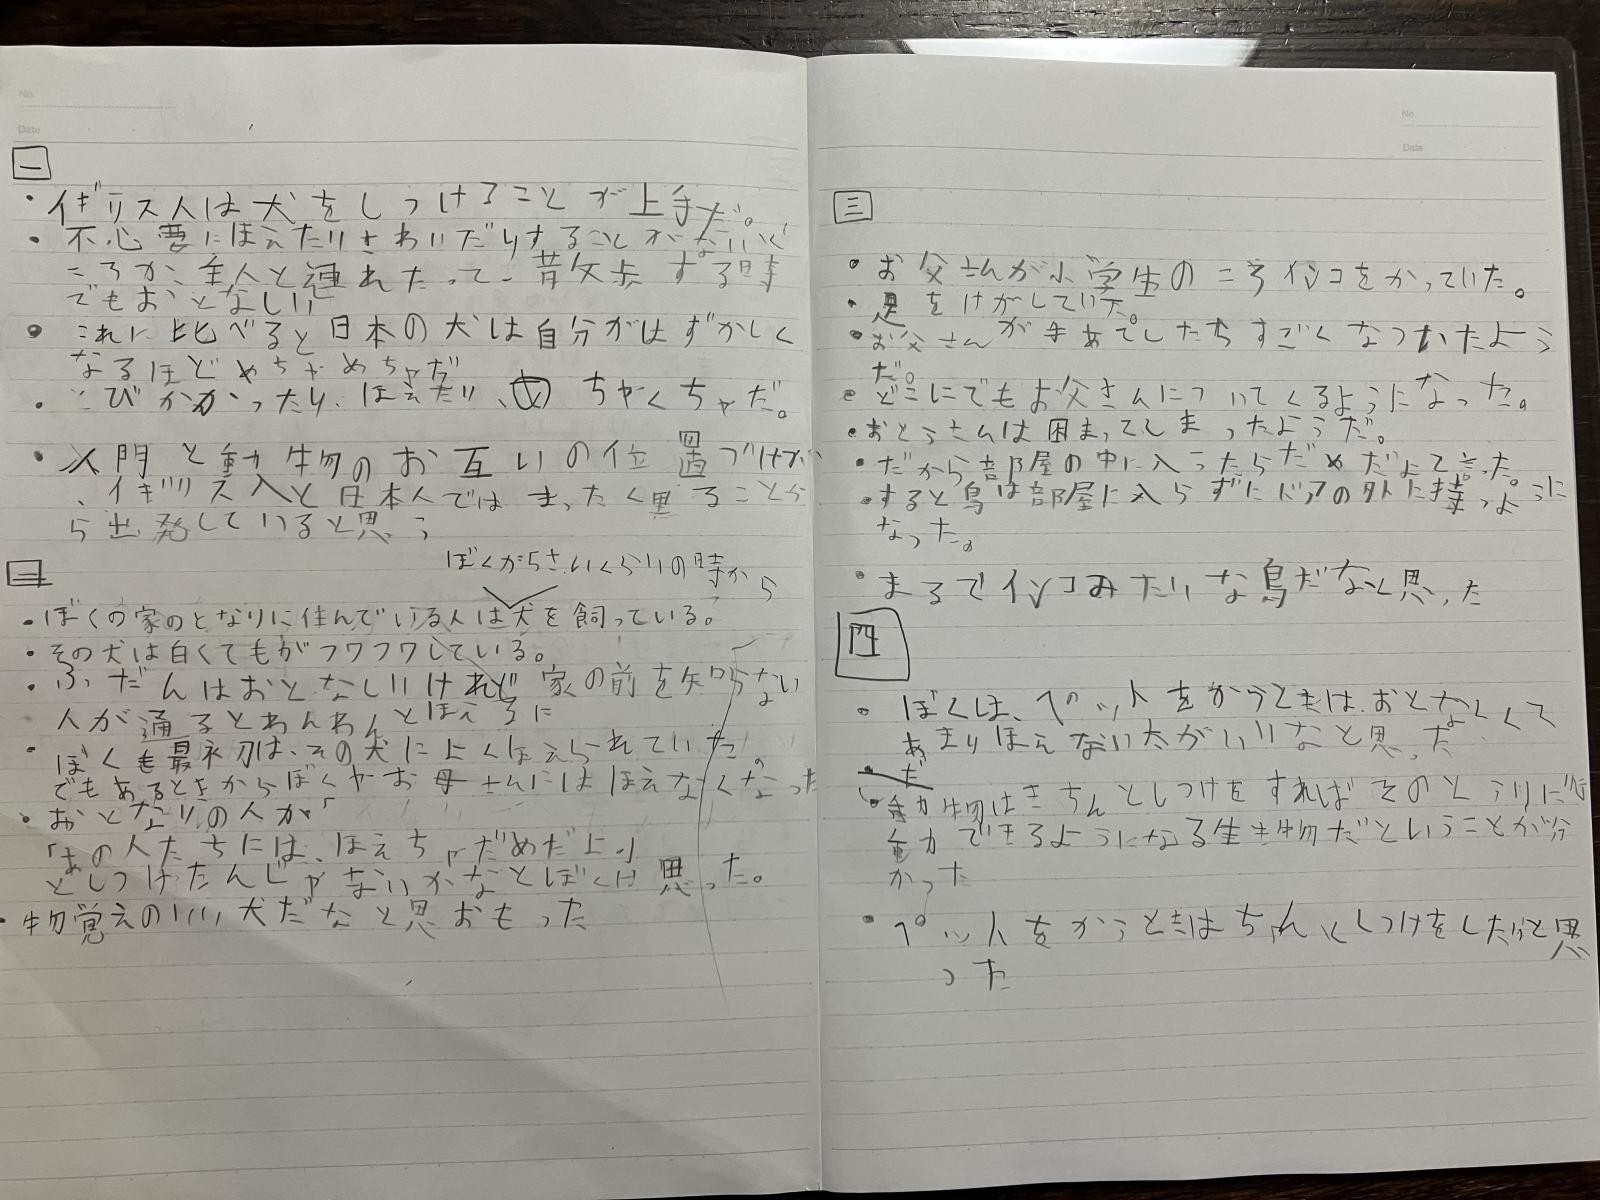 No.
Date
一
・イギリス人は犬をしつけることが上手だ。
・不必要にほえたりさわいだりすることがないど
ころか、主人と連れたって、散歩する時
でもおとなしい
・これに比べると日本の犬は自分がはずかしく
なるほどめちゃめちゃだ
・とびかかったり、ほえたり、め ちゃくちゃだ。
・人間と動物のお互いの位置づけが
、イギリス人と日本人ではまったく異ることか
ら出発していると思う
二
ぼくが5さいくらいの時から
・ぼくの家のとなりに住んでいる人は犬を飼っている。
・その犬は白くてもがフワフワしている。
・ふだんはおとなしいけれど家の前を知らない
人が通るとわんわんとほえるに
・ぼくも最初は、その犬によくほえられていた。
でもあるときからぼくやお母さんにはほえなくなった
・おとなりの人が「
「あの人たちには、ほえちゃだめだよ」
としつけたんじゃないかなとぼくは思った。
・物覚えのいい犬だなと思おもった
No.
Date
三
・お父さんが小学生のころインコをかっていた。
・足をけがしていた。
・お父さんが手あてしたらすごくなついたよう
だ。
・どこにでもお父さんについてくるようになった。
・おとうさんは困まってしまったようだ。
・だから部屋の中に入ったらだめだよて言った。
・すると鳥は部屋に入らずにドアの外に待つように
なった。
・まるでインコみたいな鳥だなと思った
四
・ぼくは、ペットをかうときは、おとなしくて
あまりほえない犬がいいなと思った
・だ
・動物はきちんとしつけをすればそのとうりに行
動できるようになる生き物だということが分
かった
・ペットをかうときはちゃんとしつけをしたいと思
った